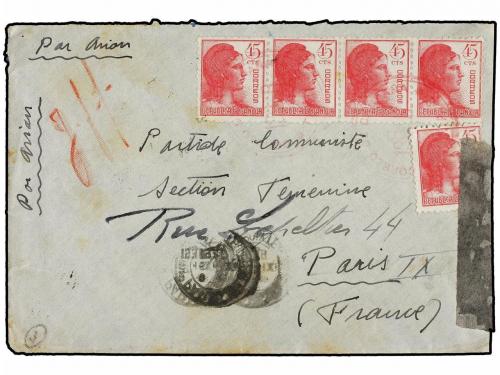 Par Avion
45 CTS CORREOS REPUBLICA ESPAÑOLA
45 CTS CORREOS REPUBLICA ESPAÑOLA
45 CTS CORREOS REPUBLICA ESPAÑOLA
45 CTS CORREOS REPUBLICA ESPAÑOLA
45
Par Avion
Partide Communiste
Section Femenine
Rue Le Peletier 44
Paris IX
(France)